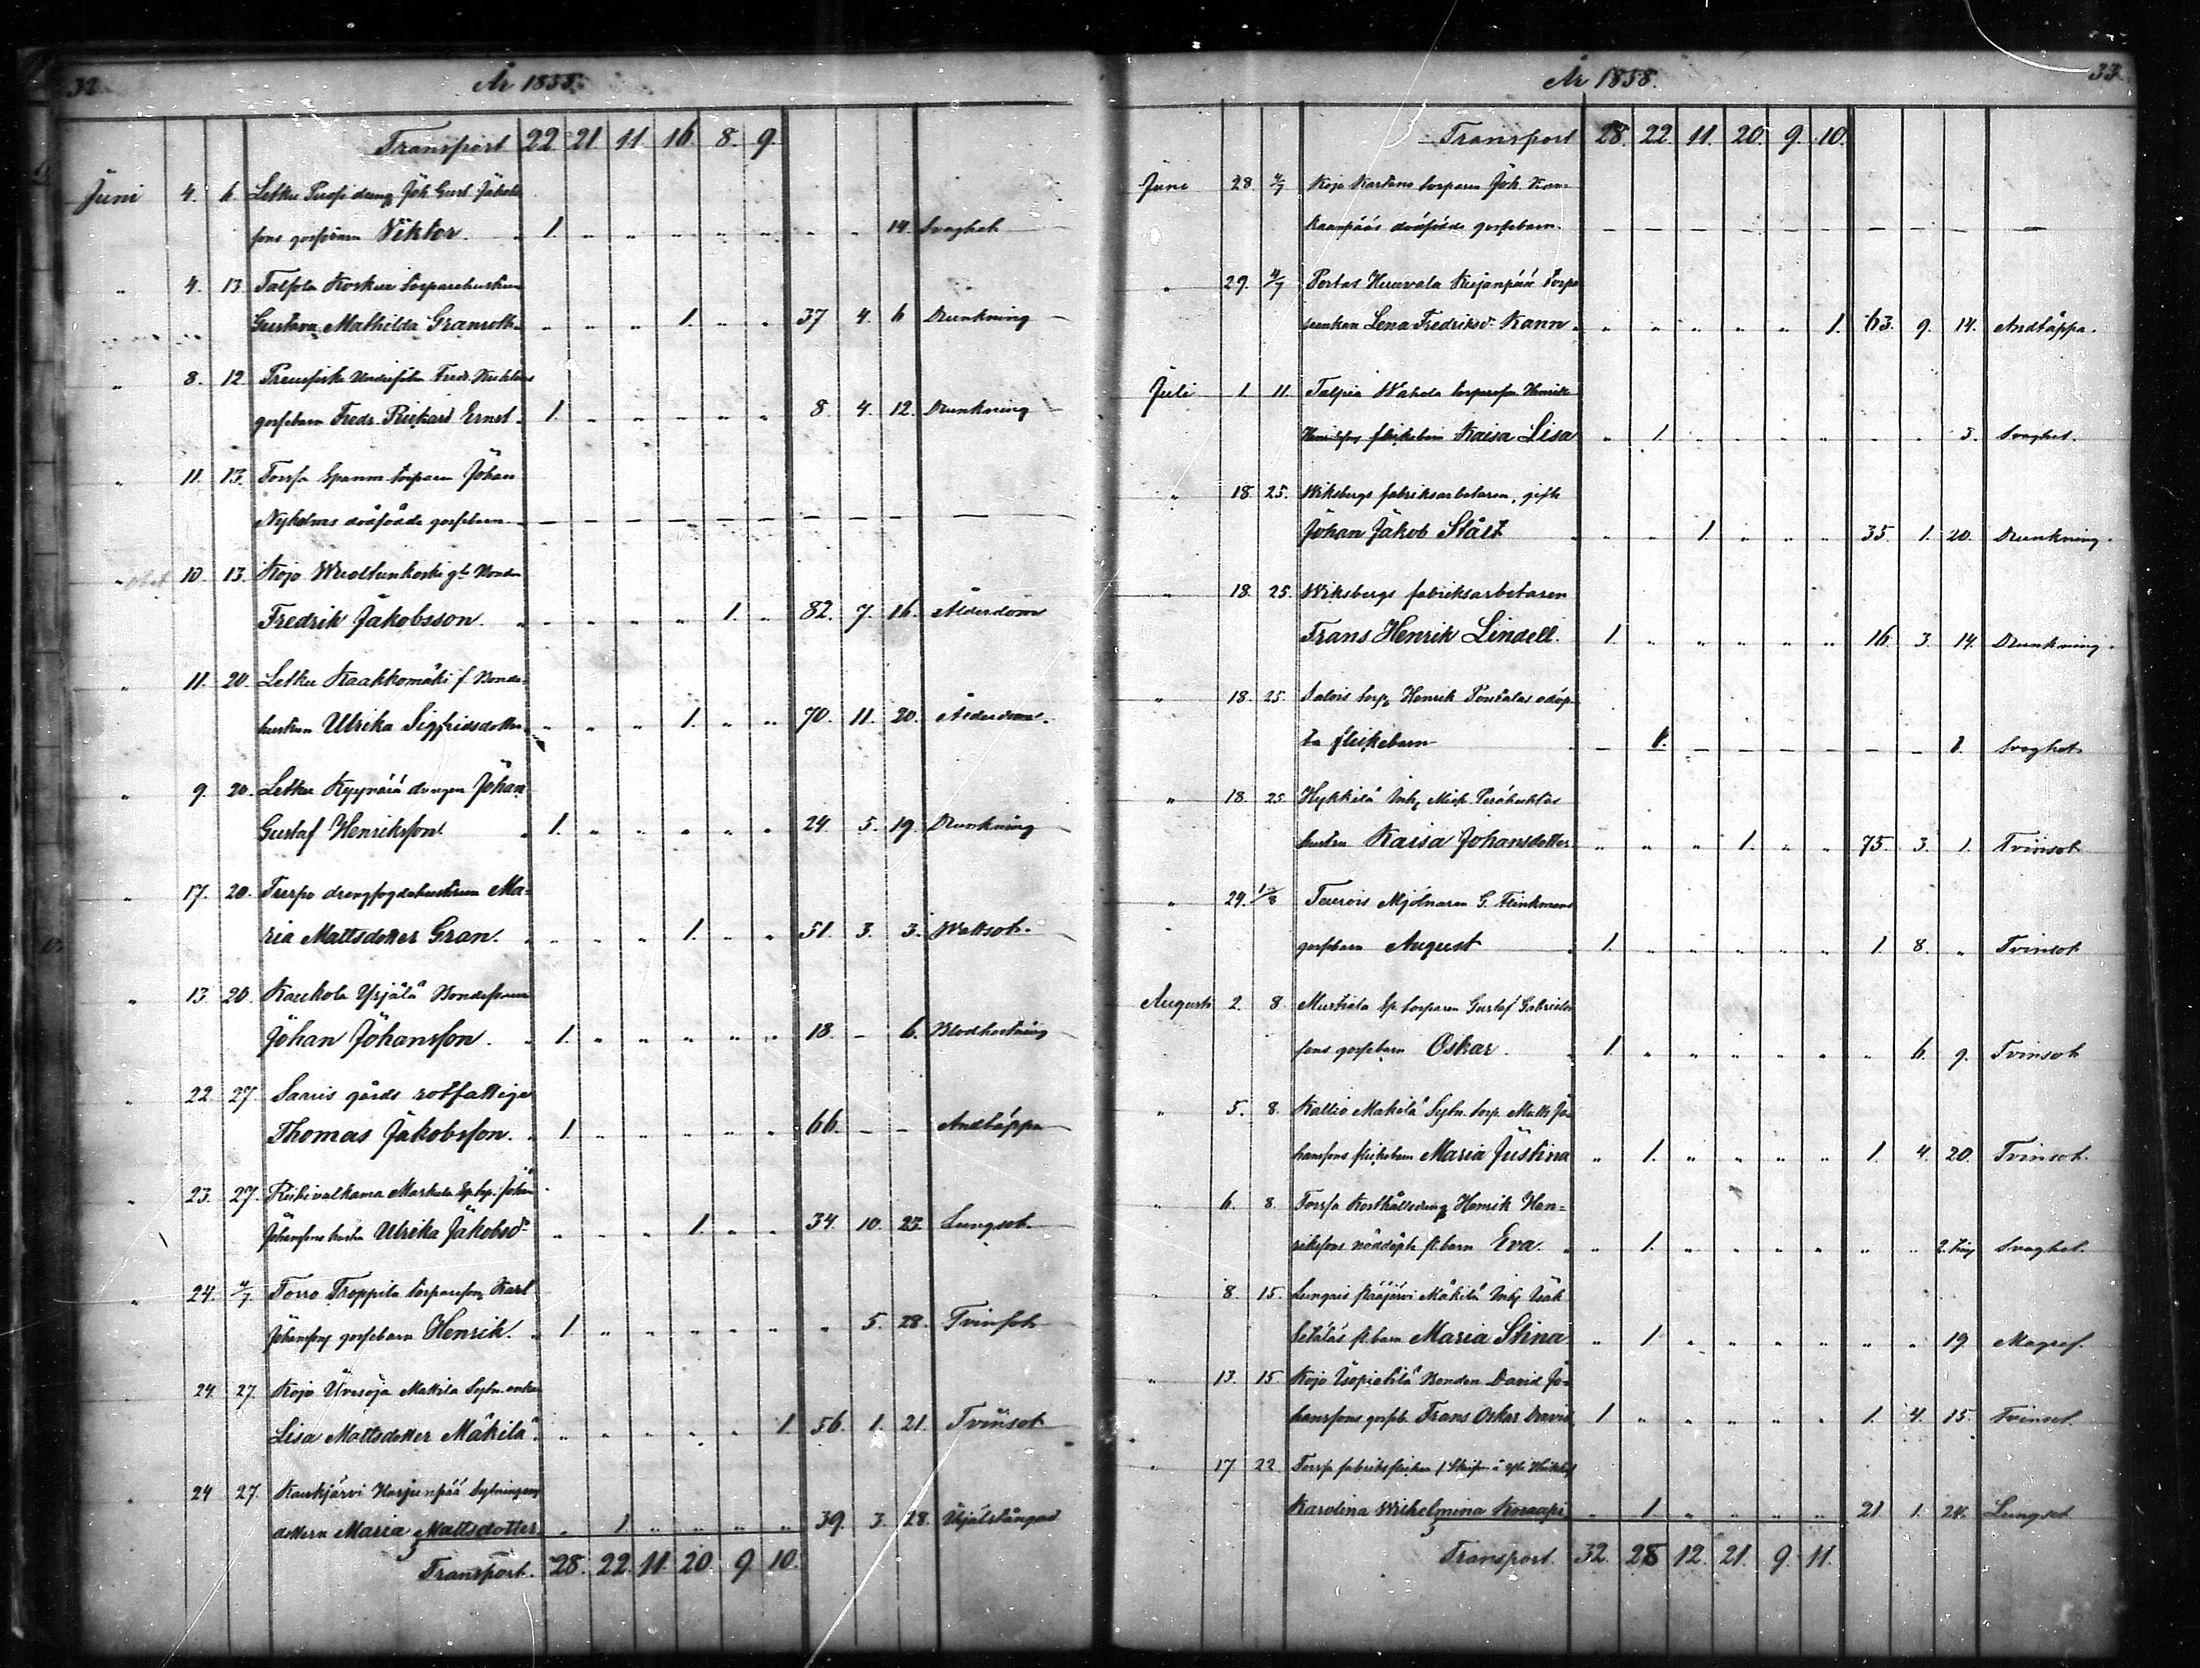 32.
År 1858.
Transport 22. 21 11 16 8. 9.
Juni 4. 6. Letku drang Joh. Gust. Jakob-
sons gossebarn Viktor. 1. " " " " " " " 14. Svaghet
" 4. 13 Talpola Korkee torparehustrun
Gustava Mathilda Granroth. " " " 1. " " 37 4. 6 Drunkning
" 8. 12 Fredr.
gossebarn Fredr. Rickard Ernst. 1. " " " " " 8. 4. 12. Drunkning
" 11. 13. Forssa Spanm torparen Johan
Nyholms dödfödde gossebarn — — — — — — — — — —
" 10. 13. Kojo Wuoltunkoski gl. Bonden
Fredrik Jakobsson. " " " " 1. " 82. 7. 16. Ålderdom
" 11. 20. Letku Kaakkomäki f Bonde-
hustrun Ulrika Sigfridsdotter " " " 1. " " 70. 11. 20. Ålderdom.
" 9. 20. Letku Kyynärä drengen Johan
Gustaf Henriksson. 1. " " " " " 24. 5. 19. Drunkning
" 17. 20. Turpo drengfogdehustrun Ma-
ria Mattsdotter Gran. " " " 1. " " 51. 3. 3. Wattsot.
" 13. 20. Kaukola Yrjälä Bondesonen
Johan Johansson. 1. " " " " " 18. — 6. Blodhostning
" 22. 27. Saaris gårds rotfattige
Thomas Jakobsson. 1. " " " " " 66. — — Andtäppa
" 23. 27. Markula Johan
Johanssons hustru Ulrika Jakobsdr " " " 1. " " 34. 10. 23. Lungsot
" 24. 4/7. Torro Troppila torpareson Karl
Johanssons gossebarn Henrik. 1. " " " " " " 5. 28. Tvinsot
24. 27. Kojo Uvesoja Mattila Sytn. enkan
Lisa Mattsdotter Mäkilä. " " " " " 1. 56. 1. 21. Tvinsot
" 24 27. Kaukjärvi Harjunpää Sytnings
dottern Maria Mattsdotter " 1. " " " " 39. 3. 28. Ihjälstångad
Transport. 28. 22. 11. 20. 9. 10.
33.
År 1858.
Transport 28. 22. 11. 20. 9. 10.
Juni 28. 4/7 Kojo torparen Joh. Kan-
kaanpääs dödfödde gossebarn. — — — — — — — — — —
" 29. 4/7 Portas Huuvala Kujanpää torp
enkan Lena Fredriksdr Kann. " " " " " 1. 63. 9. 14. Andtäppa.
Juli 1. 11. Talpia torpareson Henrik
Henrikssons flickebarn Kaisa Lisa " 1. " " " " " " 3. Svaghet.
" 18. 25. Wiksbergs fabriksarbetaren, gifte
Johan Jakob Stålt " " 1. " " " 35. 1. 20. Drunkning.
" 18. 25. Wiksbergs fabriksarbetaren
Frans Henrik Lindell. 1. " " " " " 16. 3. 14. Drunkning.
" 18. 25. Salois torp. Henrik odöp-
ta flickebarn — 1. — — — — — — 1. Svaghet
" 18. 25. Hykkilä Inh.
hustru Kaisa Johansdotter " " " 1. " " 75. 3. 1. Tvinsot
" 29. 1/8 Teurois Mjölnaren G. Flinkmans
gossebarn August 1. " " " " " 1. 8. " Tvinsot
Augusti 2. 8. Mustiala Sp. torparen Gustaf Gabriels-
sons gossebarn Oskar. 1. " " " " " " 6. 9. Tvinsot
" 5. 8. Kallio Mäkilä Sytn. torp. Matts Jo-
hanssons flickebarn Maria Justina " 1. " " " " 1. 4. 20. Tvinsot.
" 6. 8. Forssa Henrik Hen-
rikssons nöddöpta fl.barn Eva. " 1. " " " " " " 2. tim Svaghet.
" 8. 15. Lungais Pääjärvi Mäkilä Inh. Isak
fl.barn Maria Stina " 1. " " " " " " 19. Magref.
" 13. 15. Kojo Isopietilä Bonden David Jo-
hanssons gosseb. Frans Oskar David 1 " " " " " 1. 4. 15. Tvinsot.
" 17 22 Forssa fabriksflickan
Karolina Wilhelmina Knaapi " 1. " " " " 21 1. 24. Lungsot
Transport. 32. 28 12. 21. 9. 11.